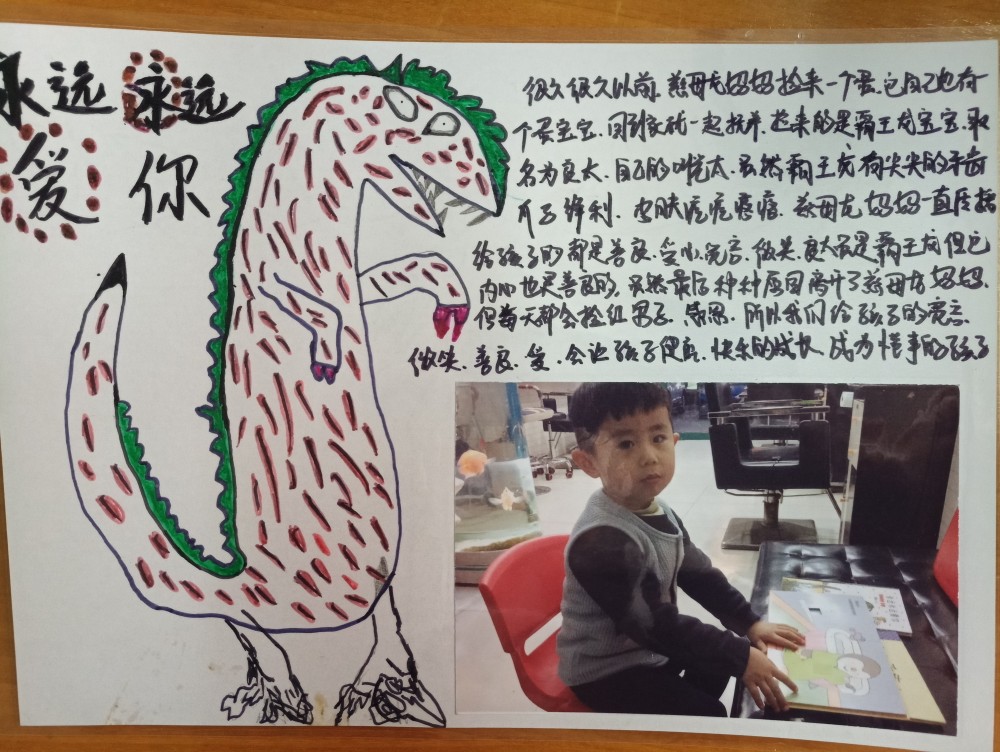 永远永远
爱你
很久很久以前,慈母龙妈妈捡来一个蛋,它自己也有
个蛋宝宝,回到家就一起抚养,捡来的是霸王龙宝宝,取
名为良太,自己的叫光太,虽然霸王龙有尖尖的牙齿
爪子锋利,皮肤疙疙瘩瘩,慈母龙妈妈一直
给孩子的都是善良,关心宽言,微笑,良太虽是霸王龙但它
内心也是善良的,虽然最后种种原因离开了慈母龙妈妈,
但每天都会捡红果子,感恩,所以我们给孩子的宽言
微笑、善良、爱,会让孩子健康,快乐的成长,成为懂事的孩子